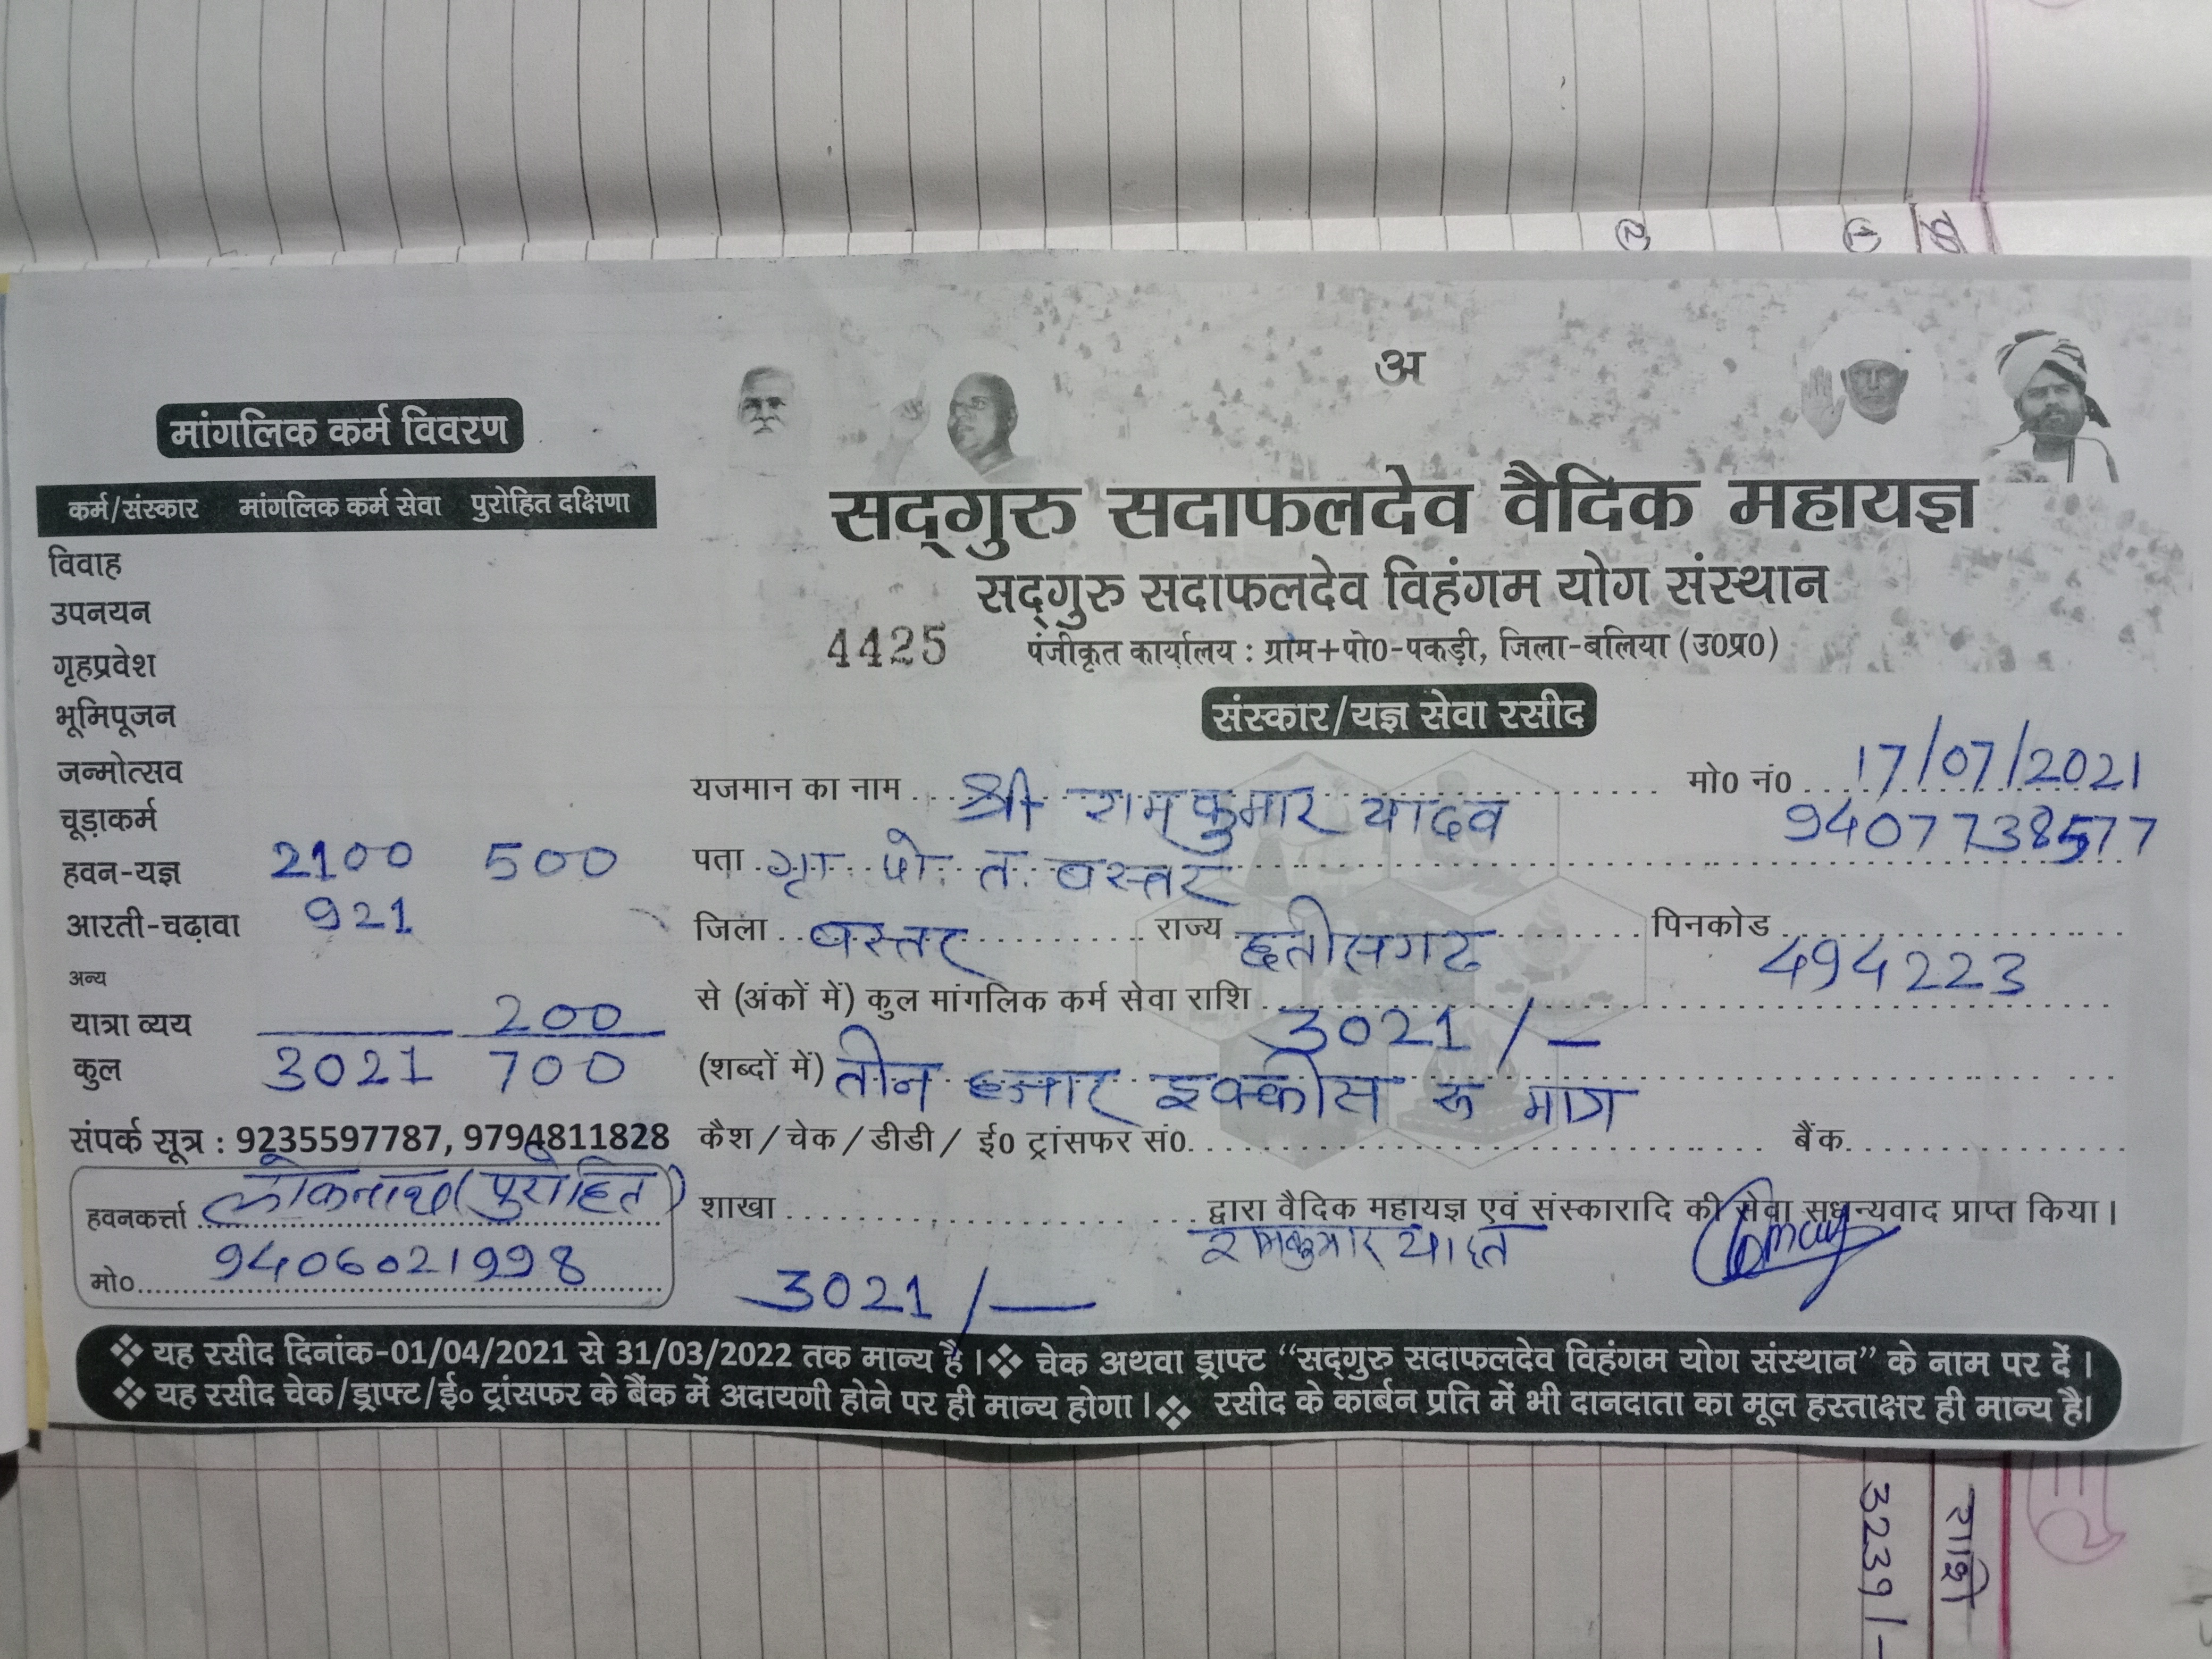 अ
मांगलिक कर्म विवरण
कर्म/संस्कार मांगलिक कर्म सेवा पुरोहित दक्षिणा
विवाह
उपनयन
गृहप्रवेश
भूमिपूजन
जन्मोत्सव
चूड़ाकर्म
हवन-यज्ञ 2100 500
आरती-चढ़ावा 921
अन्य
यात्रा व्यय 200
कुल 3021 700
संपर्क सूत्र : 9235597787, 9794811828
हवनकर्त्ता लोकनाथ (पुरोहित)
मो0 9406021998
सद्गुरु सदाफलदेव वैदिक महायज्ञ
सद्गुरु सदाफलदेव विहंगम योग संस्थान
4425 पंजीकृत कार्यालय : ग्राम+पो0-पकड़ी, जिला-बलिया (उ0प्र0)
संस्कार/यज्ञ सेवा रसीद
17/07/2021
यजमान का नाम श्री रामकुमार यादव मो0 नं0 9407738577
पता ग्रा. पो. त. बस्तर
जिला बस्तर राज्य छत्तीसगढ़ पिनकोड 494223
से (अंकों में) कुल मांगलिक कर्म सेवा राशि 3021/-
(शब्दों में) तीन हजार इक्कीस रु मात्र
कैश / चेक / डीडी / ई0 ट्रांसफर सं0 बैंक
शाखा द्वारा वैदिक महायज्ञ एवं संस्कारादि की सेवा सधन्यवाद प्राप्त किया।
रामकुमार यादव
3021/-
❖ यह रसीद दिनांक-01/04/2021 से 31/03/2022 तक मान्य है। ❖ चेक अथवा ड्राफ्ट “सद्गुरु सदाफलदेव विहंगम योग संस्थान” के नाम पर दें।
❖ यह रसीद चेक/ड्राफ्ट/ई० ट्रांसफर के बैंक में अदायगी होने पर ही मान्य होगा। ❖ रसीद के कार्बन प्रति में भी दानदाता का मूल हस्ताक्षर ही मान्य है।
राशि
3239/-